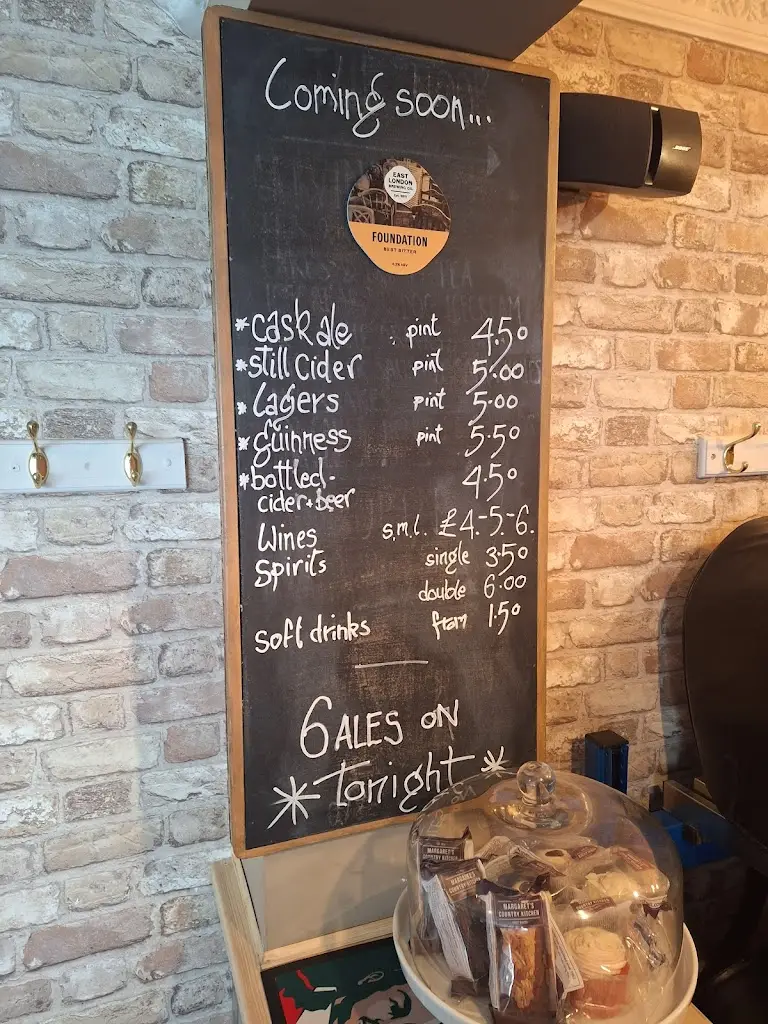 Coming soon...
EAST
LONDON
BREWING CO.
FOUNDATION
BEST BITTER
*cask ale pint 4.50
*still cider pint 5.00
*Lagers pint 5.00
*Guinness pint 5.50
*bottled- 4.50
cider+beer
Wines s.m.l. £4.-5.-6.
Spirits single 3.50
double 6.00
soft drinks from 1.50
6 ALES ON
*Tonight*
BOSE
MARGARET'S
COUNTRY KITCHEN
MARGARET'S
COUNTRY KITCHEN
MARGARET'S
COUNTRY KITCHEN